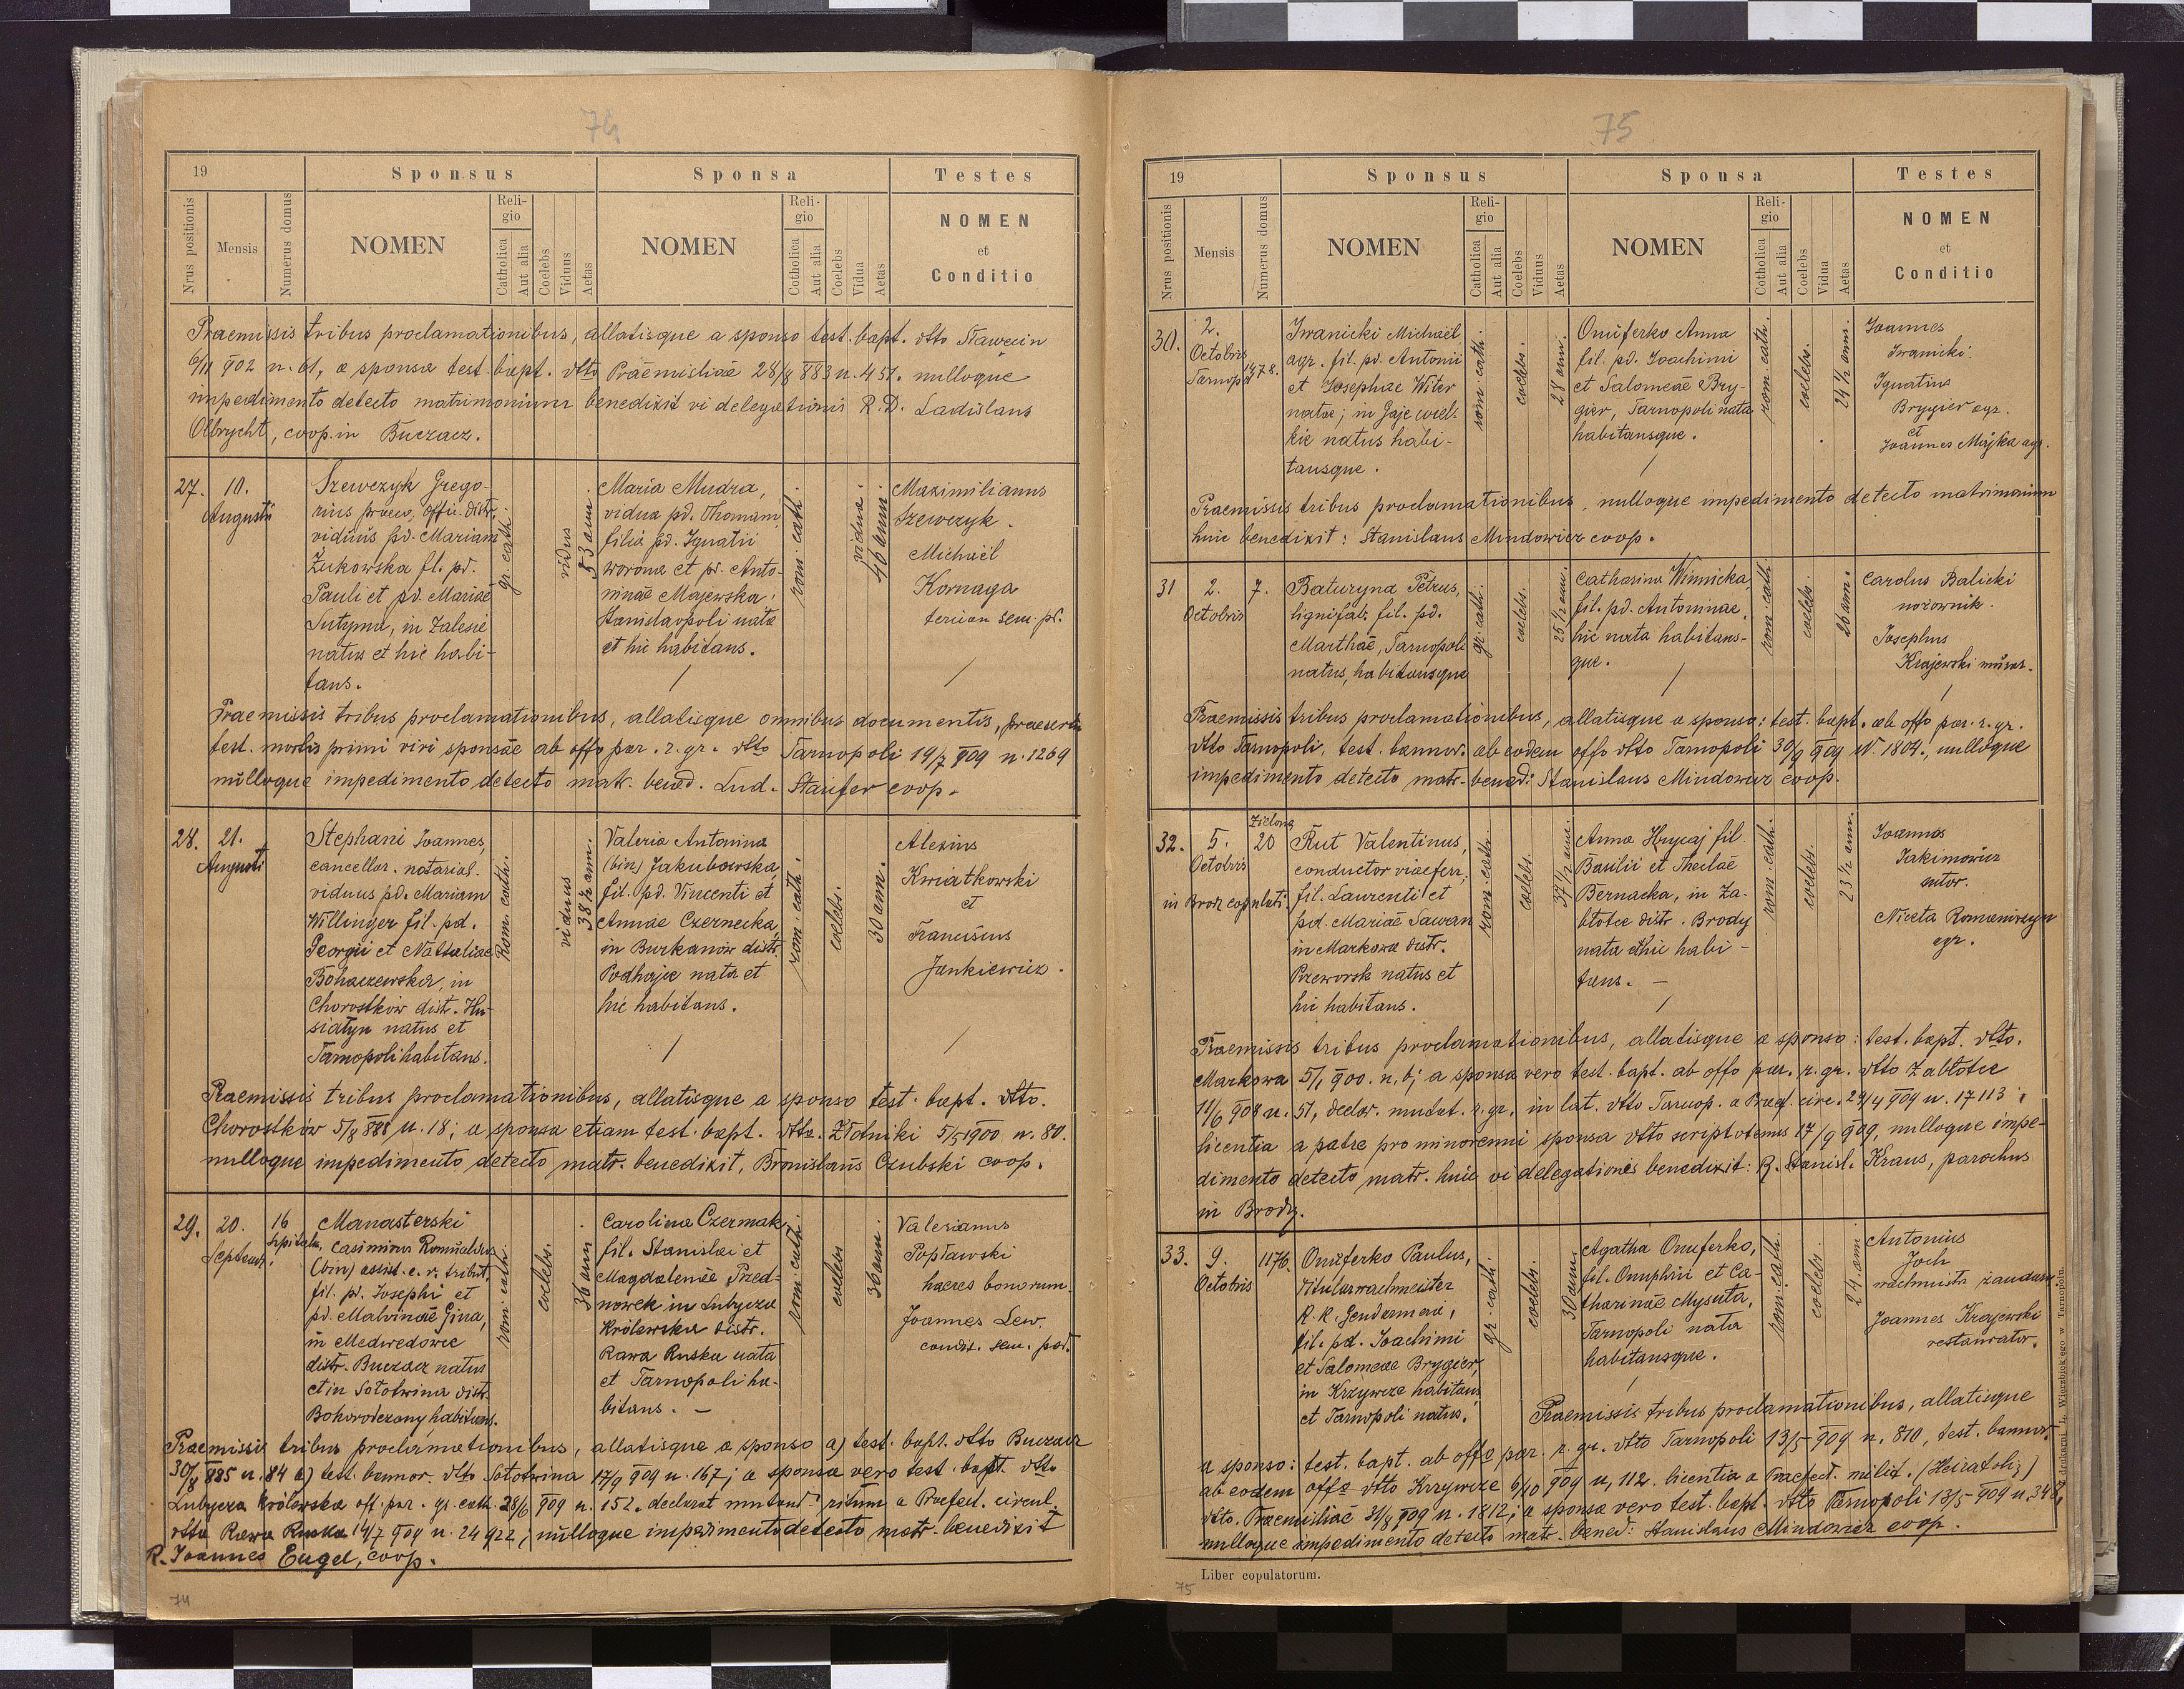 74
19
Sponsus
Sponsa
Testes
Nrus positionis
Mensis
Numerus domus
NOMEN
Religio
Catholica
Aut alia
Coelebs
Viduus
Aetas
NOMEN
Religio
Catholica
Aut alia
Coelebs
Vidua
Aetas
NOMEN
et
Conditio
Praemissis tribus proclamationibus, allatisque a sponso test. bapt. dtto
6/11 902 n. 61, a sponsa test. bapt. dtto Praemisliae 28/8 883 n. 451. nulloque
impedimento detecto matrimonium benedixit vi delegationis R. D. Ladislaus
Olbrycht, coop. in Buczacz.
27.
10.
Augusti
Szewczyk Grego-
rius offic. distr.
viduus pd. Mariam
Żukowska fil. pd.
Pauli et pd. Mariae
in Zalesie
natus et hic habi-
tans.
gr. cath.
vidus
53 ann.
Maria Mudra,
vidua pd. Thomam,
filia pd. Ignatii
Worona et pd. Anto-
ninae Majewska,
Stanislaopoli nata
et hic habitans.
rom. cath.
vidua.
46 ann.
Maximilianus
Szewczyk.
Michaël
Kornaga
tercian sem. pr.
Praemissis tribus proclamationibus, allatisque omnibus documentis, praesertim
test. mortis primi viri sponsae ab offo par. r. gr. dtto Tarnopoli 19/7 909 n. 1269
nulloque impedimento detecto matr. bened. Lud. Staufer coop.
28.
21.
Augusti
Stephani Joannes,
cancellar. notarial.
viduus pd. Mariam
Willinger fil. pd.
Georgii et Nathaliae
Bohaczewska, in
Chorostków distr. Hu-
siatyn natus et
Tarnopoli habitans.
Rom. cath.
vidus
38½ ann.
Valeria Antonina
(bin) Jakubowska,
fil. pd. Vincenti et
Annae Czernecka,
in Burkanów distr.
Podhajce nata et
hic habitans.
rom. cath.
coelebs.
30 ann.
Alexius
Kwiatkowski
et
Franciscus
Jankiewicz.
Praemissis tribus proclamationibus, allatisque a sponso test. bapt. dtto.
Chorostków 5/8 888 n. 18; a sponsa etiam test. bapt. dtto. Złotniki 5/5 1900 n. 80.
nulloque impedimento detecto matr. benedixit, Bronislaus Czubski coop.
29.
20.
Septemb.
16
Szpitaln.
Manasterski
Casimirus Romualdus
(bin) assist. c. r. tribut.
fil. pd. Josephi et
pd. Malvinae Gina,
in Medwedowce
distr. Buczacz natus
et in Sołotwina distr.
Bohorodczany habitans.
rom. cath.
coelebs.
36 ann
Carolina Czermak,
fil. Stanislai et
Magdalenae Przed-
nowek in Lubycza
Królewska distr.
Rawa Ruska nata
et Tarnopoli ha-
bitans. –
rom. cath.
coelebs
36 ann.
Valerianus
Popławski
haeres bonorum.
Joannes Lew.
condit. sem. pod.
Praemissis tribus proclamationibus, allatisque a sponso a) test. bapt. dtto Buczacz
30/8 885 n. 84 b) test. bannor. dtto Sołotwina 17/9 909 n. 167; a sponsa vero test. bapt. dtto
Lubycza Królewska off. par. gr. cath. 28/6 909 n. 152. declarat mutand. ritum a Praefect. circul.
dtto Rawa Ruska 14/7 909 n. 24922; nulloque impedimento detecto matr. benedixit
R. Joannes Engel, coop.
74
75
19
Sponsus
Sponsa
Testes
Nrus positionis
Mensis
Numerus domus
NOMEN
Religio
Catholica
Aut alia
Coelebs
Viduus
Aetas
NOMEN
Religio
Catholica
Aut alia
Coelebs
Vidua
Aetas
NOMEN
et
Conditio
30.
2.
Octobris
Tarnop
1478.
Iwanicki Michael,
agr. fil. pd. Antonii
et Josephae Witer
natae; in Gaje wiel-
kie natus habi-
tansque.
rom. cath.
coelebs.
28 ann.
Onuferko Anna
fil. pd. Joachimi
et Salomeae Bry-
gier, Tarnopoli nata
habitansque.
rom. cath.
coelebs.
24½ ann.
Joannes
Iwanicki.
Ignatius
Brygier agr.
et
Joannes Majka agr.
Praemissis tribus proclamationibus, nulloque impedimento detecto matrimonium
huic benedixit: Stanislaus Mindowicz coop.
31
2.
Octobris
7.
Baturyna Petrus,
lignifab. fil. pd.
Marthae, Tarnopoli
natus, habitansque
gr. cath.
coelebs.
25½ ann.
Catharina Winnicka,
fil. pd. Antoninae,
hic nata habitans-
que.
rom. cath
coelebs.
26 ann.
Carolus Balicki
nożownik.
Josephus
Krajewski murar.
Praemissis tribus proclamationibus, allatisque a sponso: test. bapt. ab offo par. r. gr.
dtto Tarnopoli, test. bannor. ab eodem offo dtto Tarnopoli 30/9 909 N. 1804., nulloque
impedimento detecto matr. bened: Stanislaus Mindowicz coop.
32.
5.
Octobris
in Brody copulati
Zielona
20
Rut Valentinus,
conductor viae ferr.
fil. Laurenti et
pd. Mariae Sawran
in Markowa distr.
Przeworsk natus et
hic habitans.
rom. cath.
coelebs.
37½ ann.
Anna Hrycaj fil.
Basilii et Theclae
Bernacka, in Za-
błotce distr. Brody
nata et hic habi-
tans. –
rom. cath.
coelebs.
23½ ann.
Joannes
Jakimowicz
sutor.
Niceta Romaniszyn
agr.
Praemissis tribus proclamationibus, allatisque a sponso: test. bapt. dtto.
Markowa 5/1 900. n. 6; a sponsa vero test. bapt. ab offo par. r. gr. dtto Zabłotce
11/6 908 n. 51, declar. mutat. r. gr. in lat. dtto Tarnop. a Praef. circ. 29/4 909 n. 17113;
licentia a patre pro minorenni sponsa dtto scriptotenus 17/9 909, nulloque impe-
dimento detecto matr. huic vi delegationis benedixit: R. Stanisl. Kraus, parochus
in Brody.
33.
9.
Octobris
1176.
Onuferko Paulus,
Titularwachmeister
K. k. Gendarmerie,
fil. pd. Joachimi
et Salomeae Brygier,
in Krzywcze habitans
et Tarnopoli natus.
gr. cath.
coelebs.
30 ann.
Agatha Onuferko,
fil. Onuphrii et Ca-
tharinae Mysuta,
Tarnopoli nata
habitansque.
rom. cath.
coelebs.
24 ann
Antonius
Joch
wachmistr żandarm.
Joannes Krajewski
restaurator.
Praemissis tribus proclamationibus, allatisque
a sponso: test. bapt. ab offo par. r. gr. dtto Tarnopoli 13/5 909 n. 810, test. bannor.
ab eodem offo dtto Krzywcze 6/10 909 n. 112. licentia a Praefect. milit. (Heiratsliz)
dtto. Praemisliae 31/8 909 n. 1812; a sponsa vero test. bapt. dtto Tarnopoli 13/5 909 n. 348,
nulloque impedimento detecto matr. bened: Stanislaus Mindowicz coop.
Liber copulatorum.
75
Z drukarni L. Wierzbickiego w Tarnopolu.